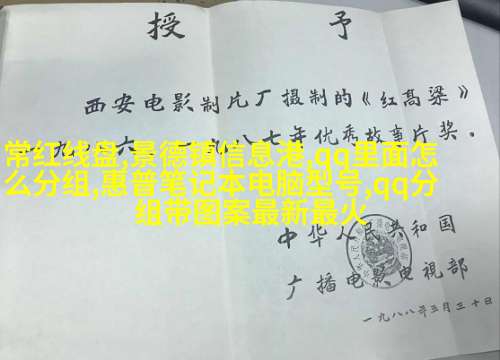 授 予
西安电影制片厂摄制的《红高粱》
一九八六 一九八七年优秀故事片奖。
常红线盘,景德镇信息港,qq里面怎
么分组,惠普笔记本电脑型号,qq分
组带图案最新最火
中华人民共和国
广播电影电视部
一九八八年三月三十日